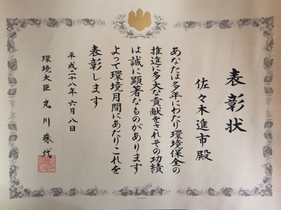 表彰状
佐々木進市殿
あなたは多年にわたり環境保全の
推進に多大な貢献をされその功績
は誠に顕著なものがあります
よって環境月間にあたりこれを
表彰します
平成二十八年六月八日
環境大臣 丸川珠代